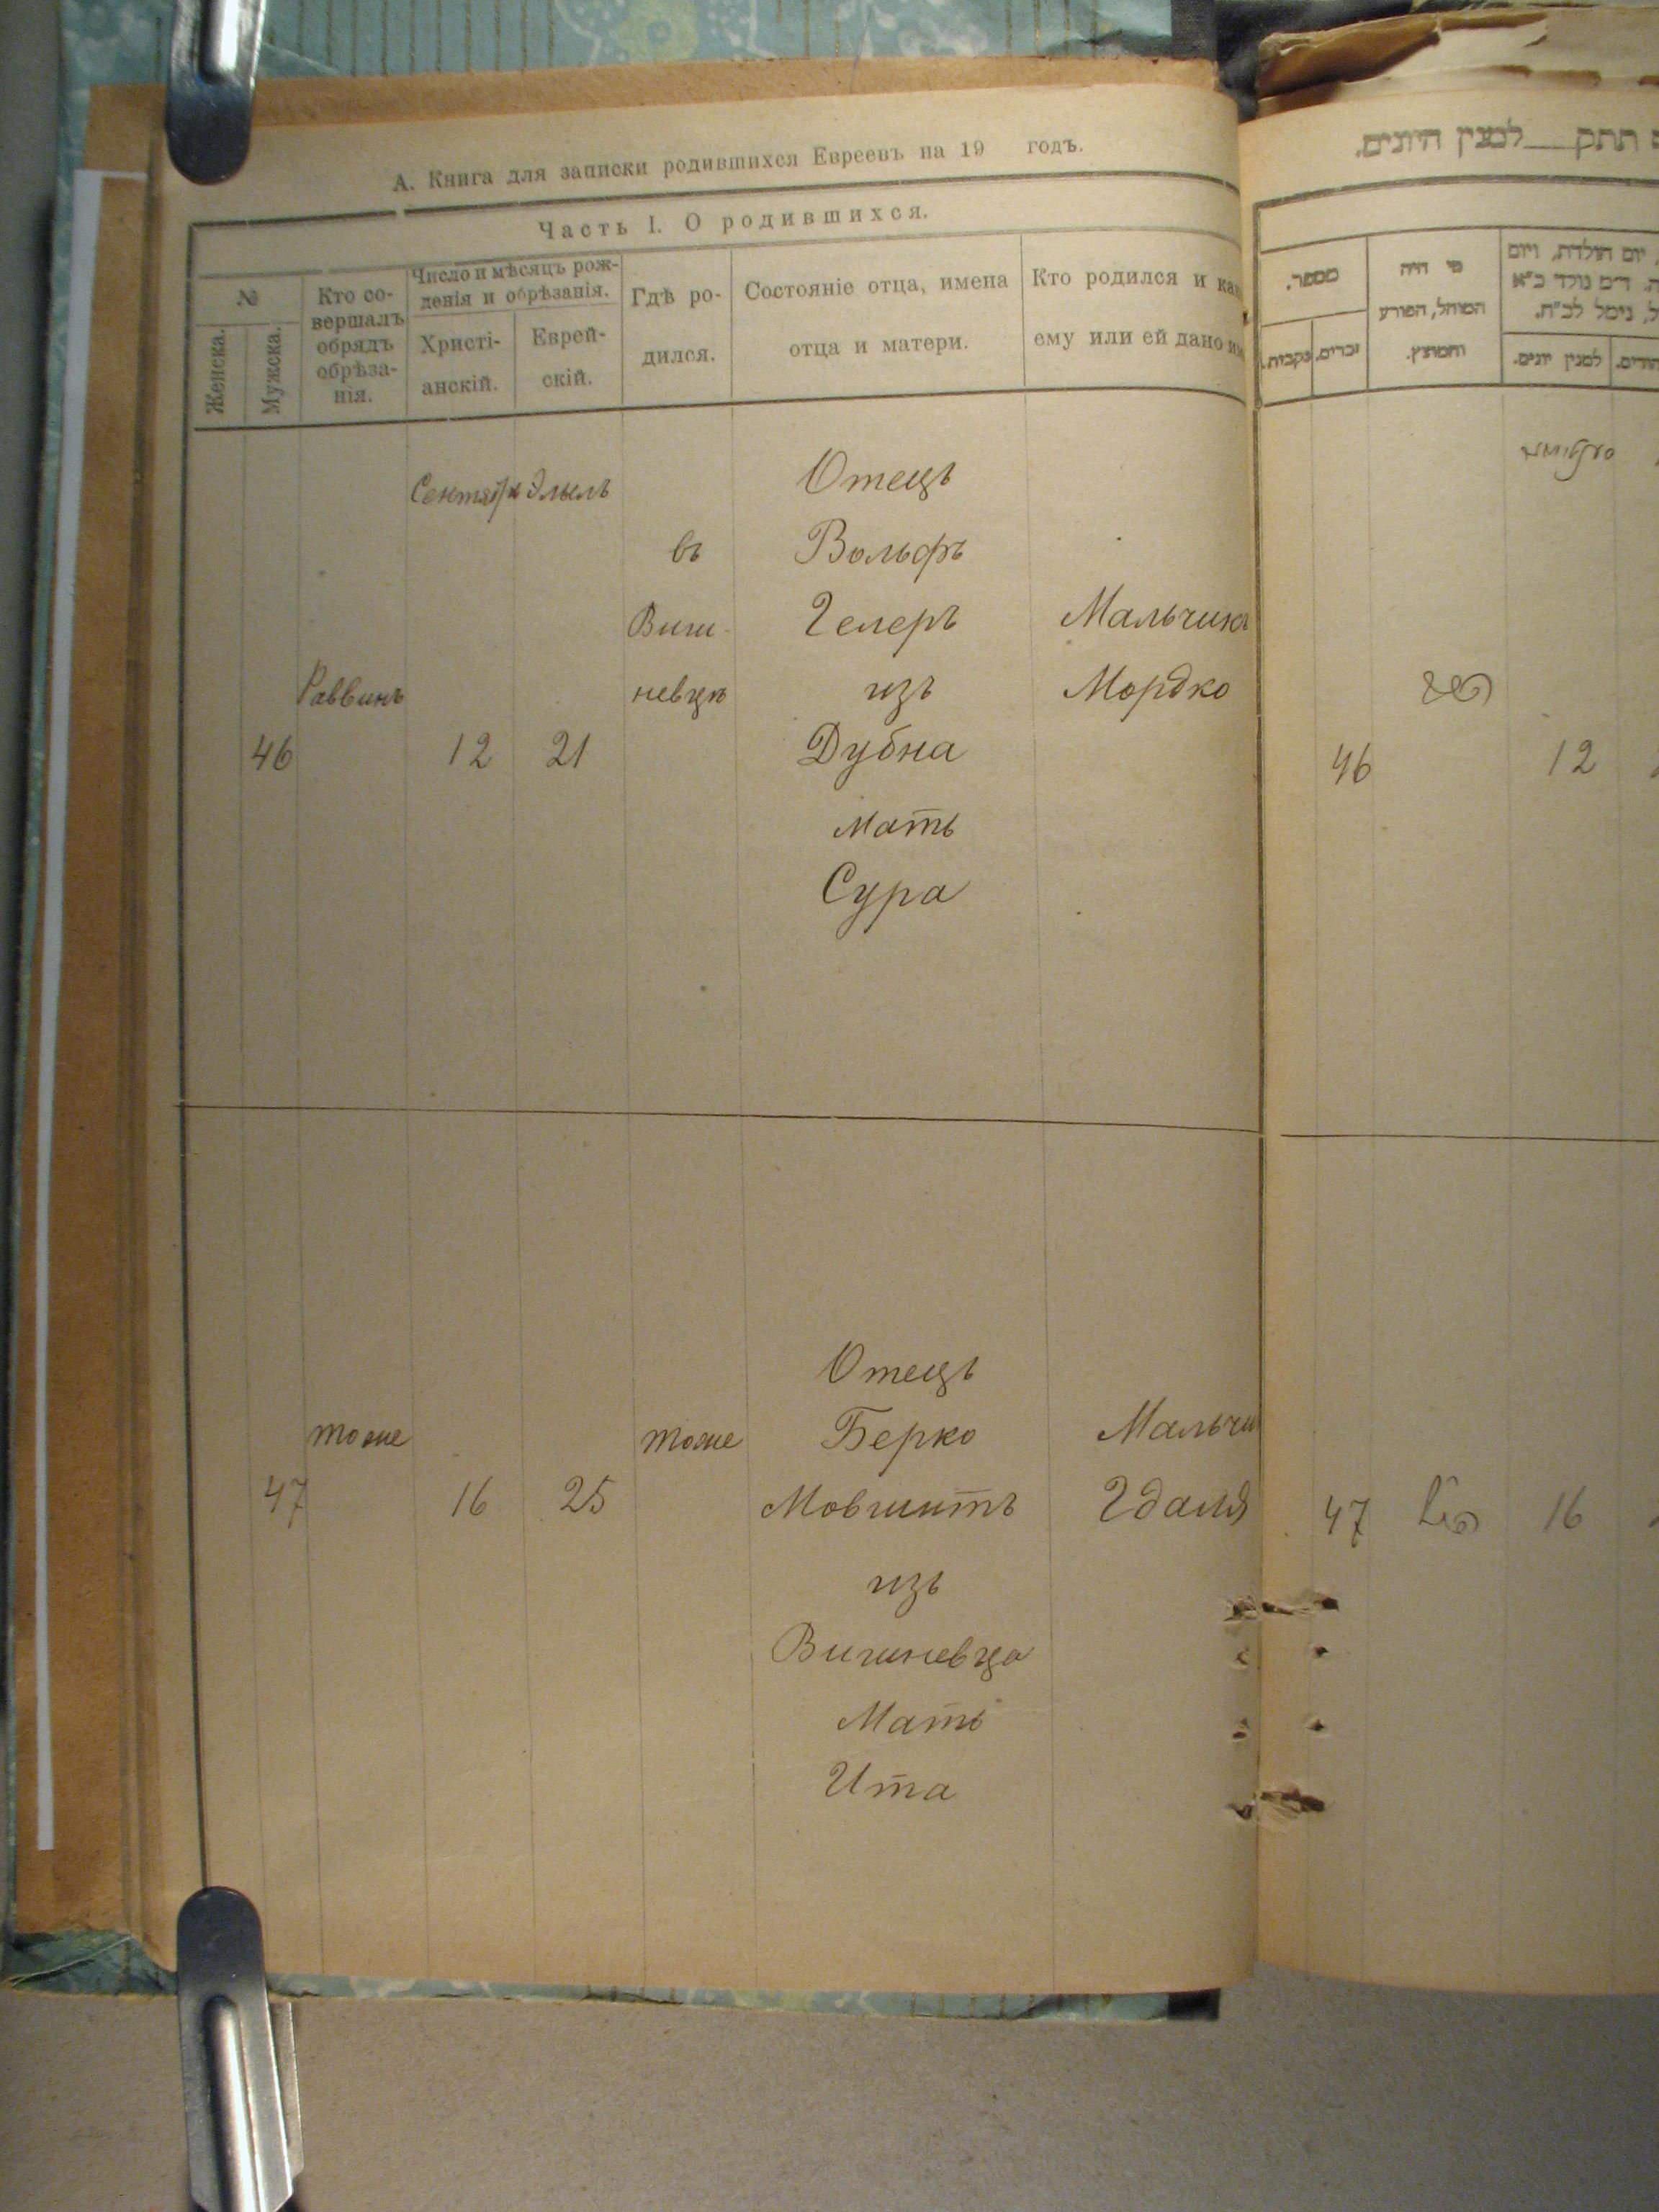 А. Книга для записки родившихся Евреевъ на 19 годъ.
Часть I. О родившихся.
№
Женска.
Мужска.
Кто со-
вершалъ
обрядъ
обрѣза-
нія.
Число и мѣсяцъ рож-
денія и обрѣзанія.
Христі-
анскій.
Еврей-
скій.
Гдѣ ро-
дился.
Состояніе отца, имена
отца и матери.
Кто родился и как
ему или ей дано им
Сентябрь Элылъ
46
Раввинъ
12
21
въ
Виш-
невцѣ
Отецъ
Вольфъ
Гелеръ
изъ
Дубна
Мать
Сура
Мальчикъ
Мордко
47
тоже
16
25
тоже
Отецъ
Берко
Мовшитъ
изъ
Вишневца
Мать
Ита
Мальчи
Гдаля
תתק למנין היונים.
מספר.
זכרים.
נקבות.
מי היה
המוהל, הפורע
והמוצץ.
יום הולדת, ויום
ה. ד״מ נולד כ״א
ל, נימל לכ״ח.
למנין יונים.
46
12
47
16